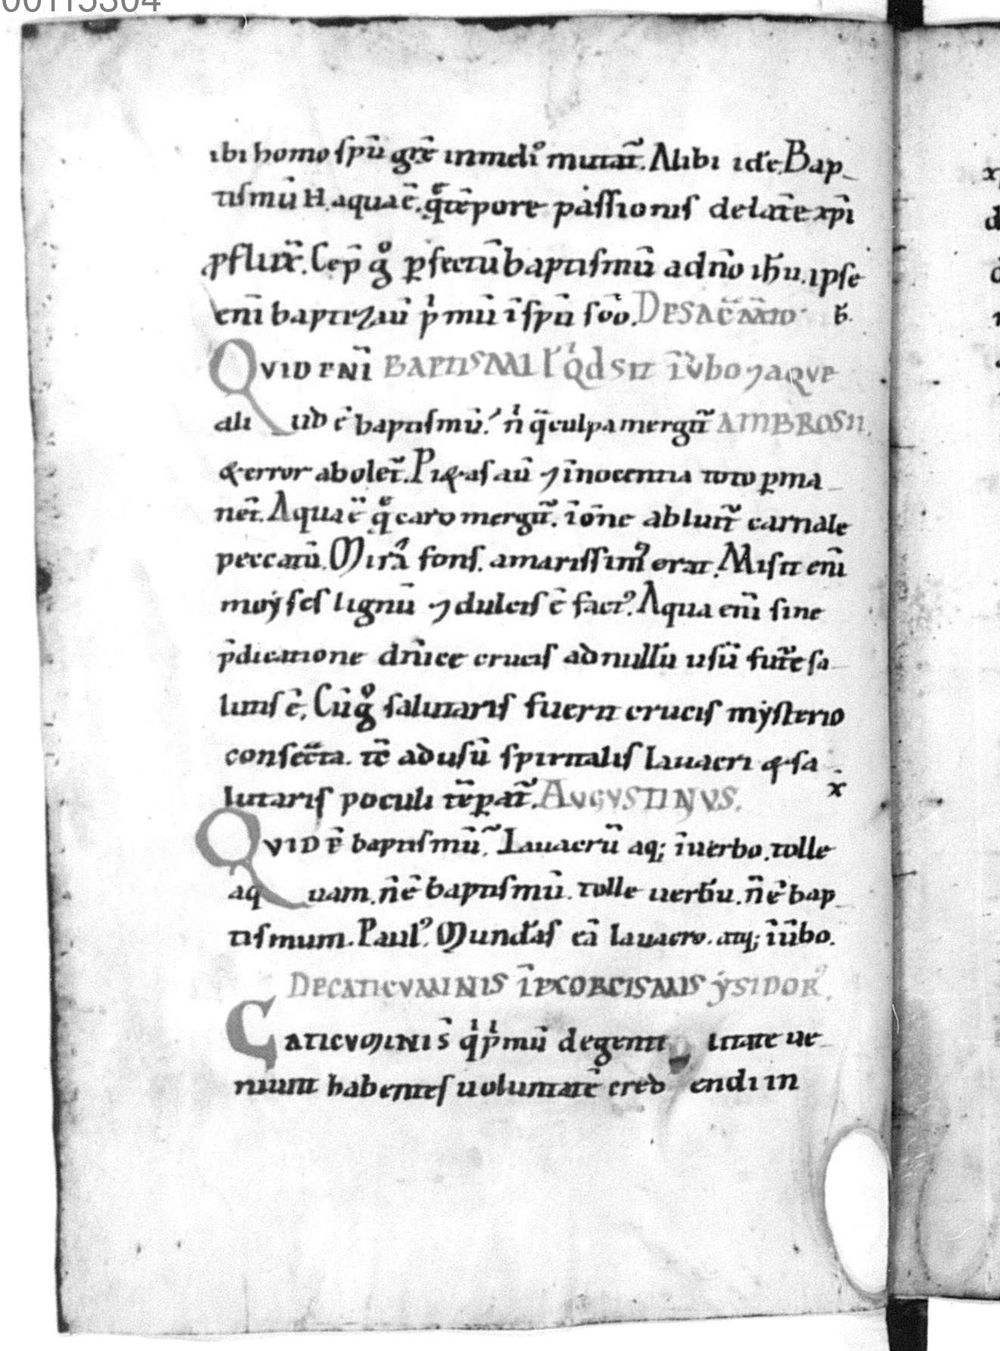 00115304
ibi homo spū grē inmeli᷒ mutat̄. Alibi idē. Bap
tismū H̄. aqua ē. q̄ tēpore passionis de latē xp̄i
ꝓflux̄. Cep̄ gͦ ꝑfectū baptismū ad nr̄o ih̄u. ipse
enī baptizau̅ pͥmū ī spū scō. DE SACM̄TO
b̄.
QVID ENĪ BAPTISMI
ali ud ē baptismū. n̄ q̄ culpa mergit̄ AMBROSII.
& error abolet̄. Pi&as aū ⁊ īnocentia toto ꝑma
net̄. Aqua ē q̄ caro mergit̄. ī ōne abluit̄ carnale
peccatū. Mirra fons. amarissim᷒ erat. Misit enī
moẏses lignū ⁊ dulcis ē fact᷒. Aqua enī sine
p̄dicatione dn̄ice crucis ad nullū usū futr̄e sa
lutis ē. Cū gͦ salutaris fuerit crucis mẏsterio
consecr̄ta. tē ad usū spiritalis lauacri & sa
lutaris poculi tēꝑat̄. AVGVSTINVS.
x
QVID Ē baptismū. Lauacrū aq; ī uerbo. tolle
aq uam. n̄ ē baptismū. tolle uerbū. n̄ ē bap
tismum. Paul᷒. Mundās eā lauacro. aq; ī ūbo.
DE CATICVMINIS ĪEXORCISMIS ẎSIDOR᷒.
CATICVMINIS̄ qͥ pͥmū de gentilitate ue
niunt habentes uoluntatē cred endi in